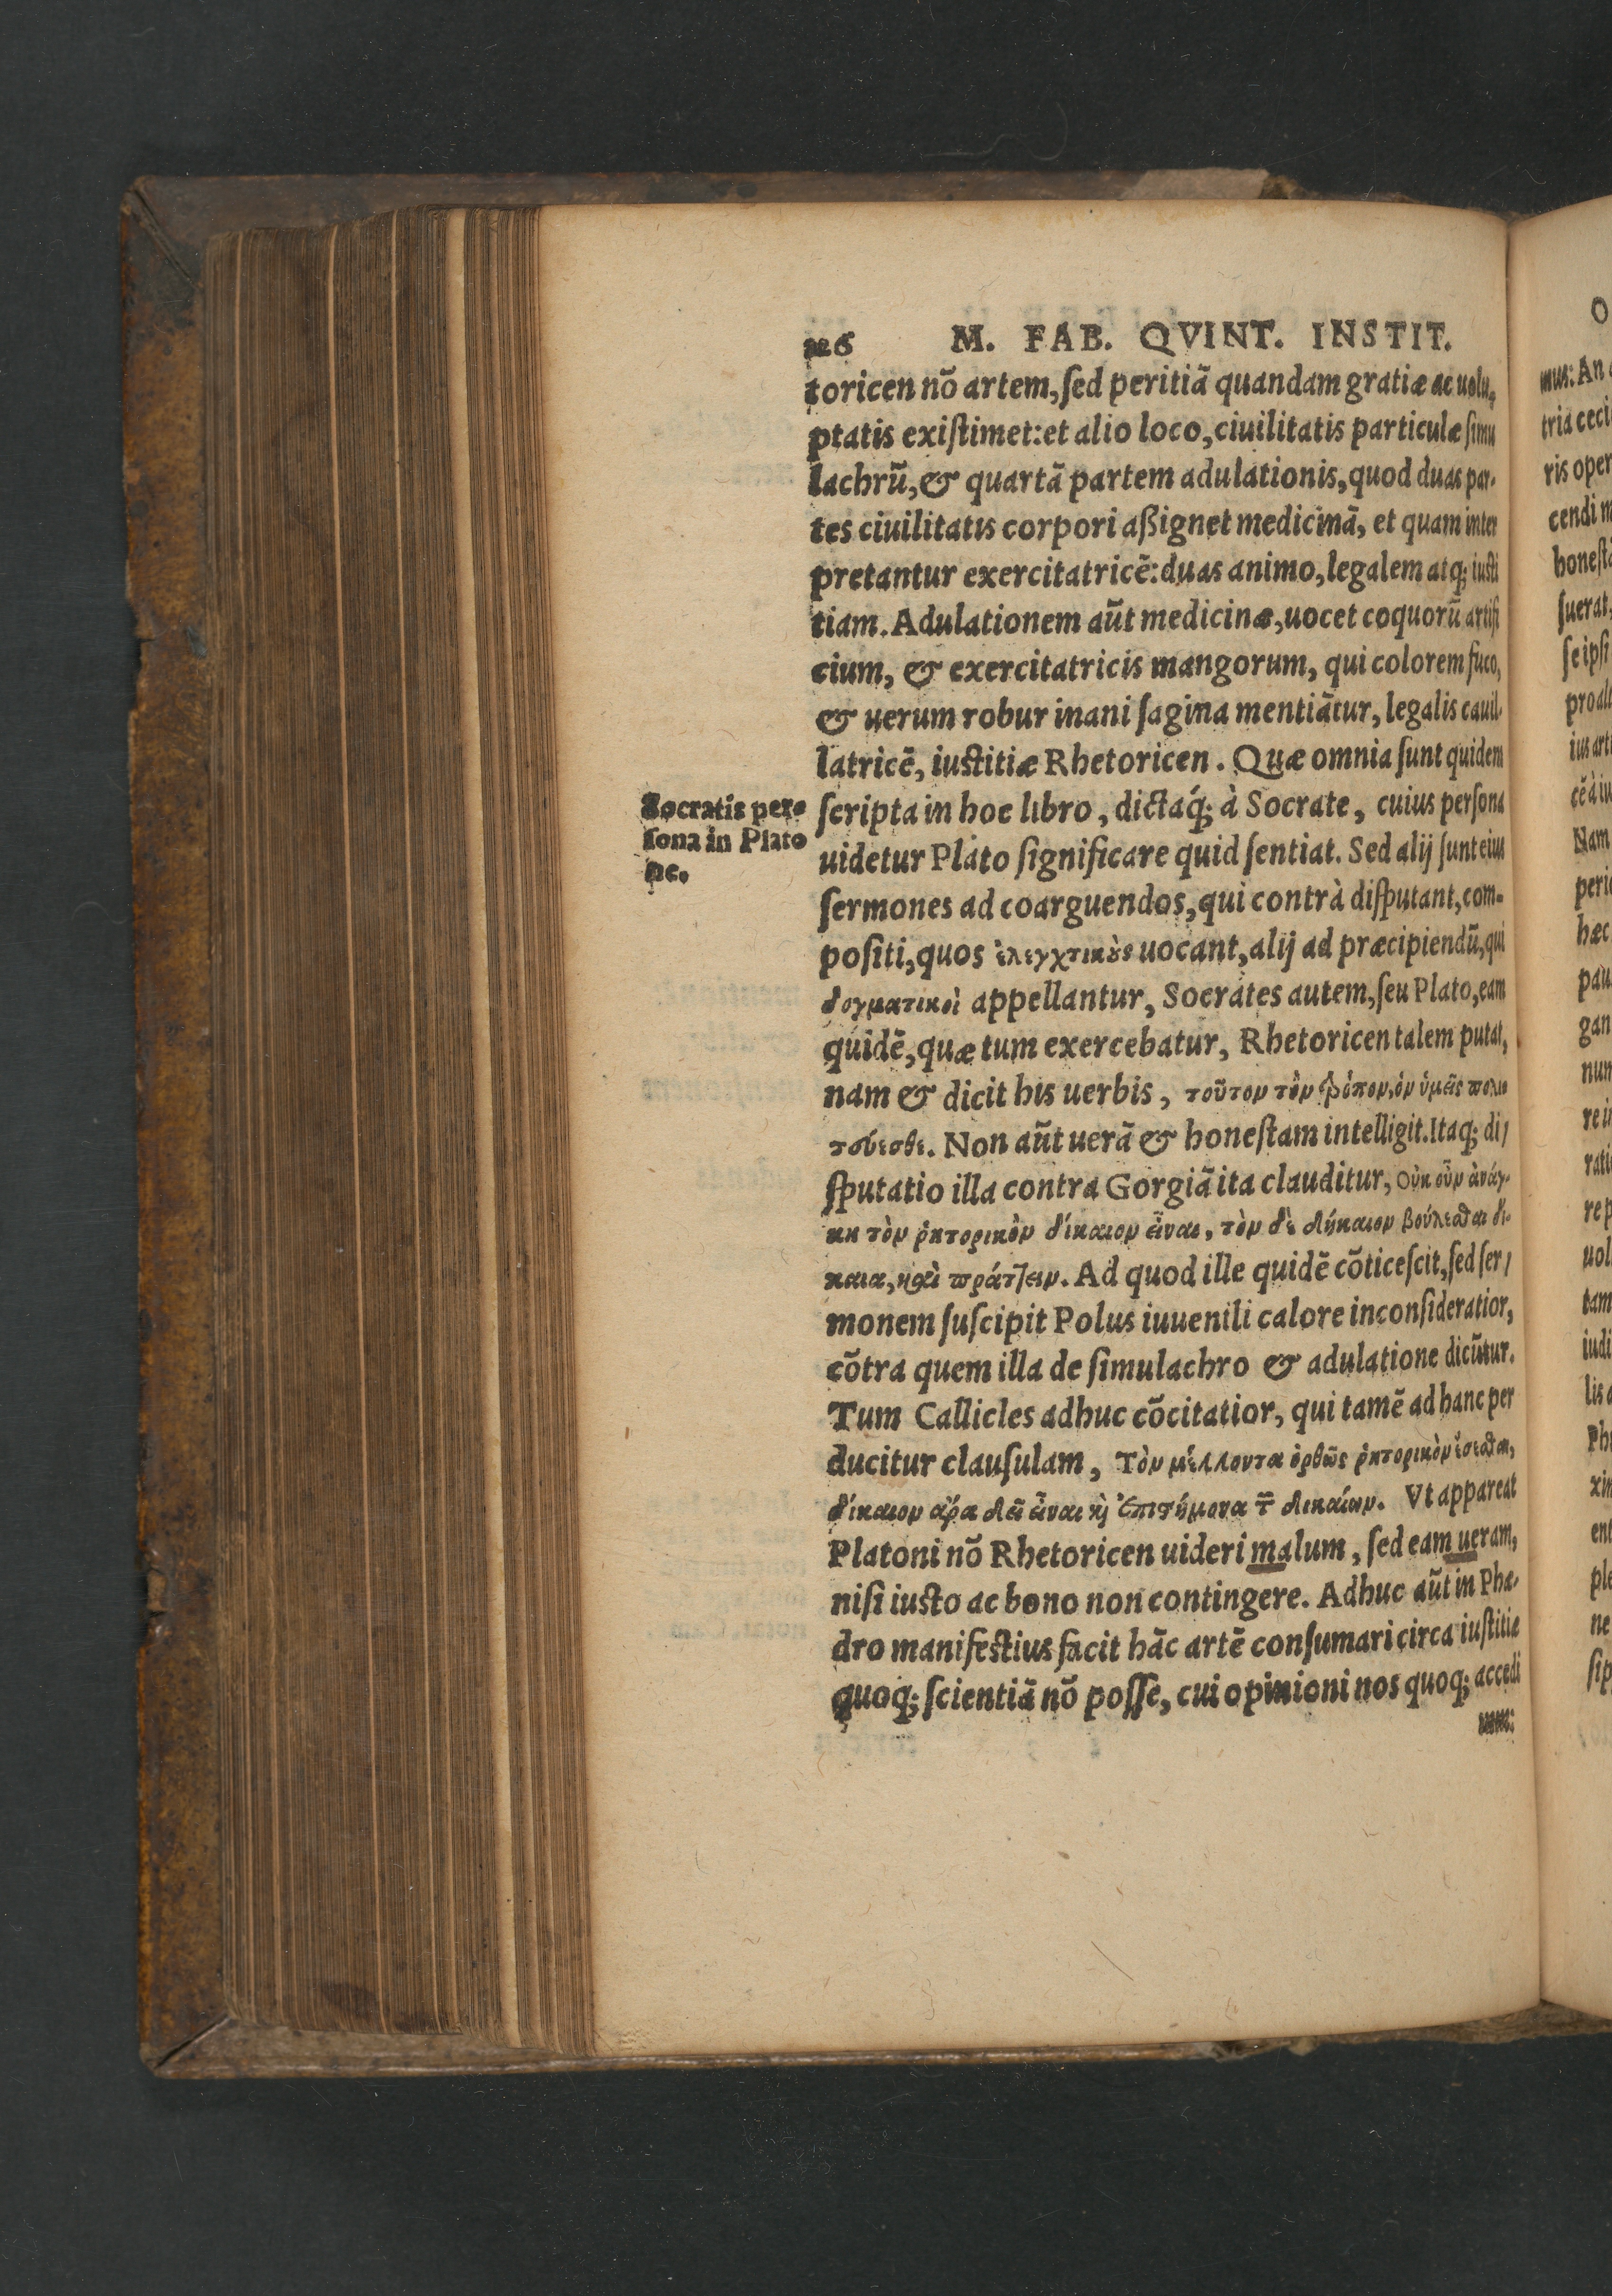 126 M. FAB. QVINT. INSTIT.
toricen nõ artem, ſed peritiã quandam gratiæ ac uolu,
ptatis exiſtimet: et alio loco, ciuilitatis particulæ ſimu
lachrũ, & quartã partem adulationis, quod duas par-
tes ciuilitatis corpori aßignet medicinã, et quam inter
pretantur exercitatricẽ: duas animo, legalem atq; iuſti
tiam. Adulationem aũt medicinæ, uocet coquorũ artifi
cium, & exercitatricis mangorum, qui colorem fuco,
& uerum robur inani ſagina mentiãtur, legalis cauil-
latricẽ, iuſtitiæ Rhetoricen. Quæ omnia ſunt quidem
Socratis per-
ſona in Plato
ne.
ſcripta in hoc libro, dictaq́; à Socrate, cuius perſona
uidetur Plato ſignificare quid ſentiat. Sed alij ſunt eius
ſermones ad coarguendos, qui contrà diſputant, com-
poſiti, quos ἐλεγχτικοὺς uocant, alij ad præcipiendũ, qui
δογματικοὶ appellantur, Socrates autem, ſeu Plato, eam
quidẽ, quæ tum exercebatur, Rhetoricen talem putat,
nam & dicit his uerbis, τοῦτον τὸν τρόπον, ὃν ὑμεῖς πολι
τεύεσθε. Non aũt uerã & honeſtam intelligit. Itaq; di/
ſputatio illa contra Gorgiã ita clauditur, Οὐκ οὖν ἀνάγ-
κη τὸν ῥητορικὸν δίκαιον εἶναι, τὸν δὲ δίκαιον βούλεσθαι δί-
καια, καὶ πράττειν. Ad quod ille quidẽ cõticeſcit, ſed ſer/
monem ſuſcipit Polus iuuenili calore inconſideratior,
cõtra quem illa de ſimulachro & adulatione dicũtur.
Tum Callicles adhuc cõcitatior, qui tamẽ ad hanc per
ducitur clauſulam, Τὸν μέλλοντα ὀρθῶς ῥητορικὸν ἔσεσθαι,
δίκαιον ἄρα δεῖ εἶναι κὶ ἐπιστήμονα τ͂ δικαίων. Vt appareat
Platoni nõ Rhetoricen uideri malum, ſed eam ueram,
niſi iuſto ac bono non contingere. Adhuc aũt in Phæ-
dro manifeſtius facit hãc artẽ conſumari circa iuſtitiæ
quoq; ſcientiã nõ poſſe, cui opinioni nos quoq; accedi
mus:
mus: An
tria ceci
ris oper
cendi
honeſt
ſuerat,
ſe ipſi
Nam
hæc
gan
uol
tam
iudi